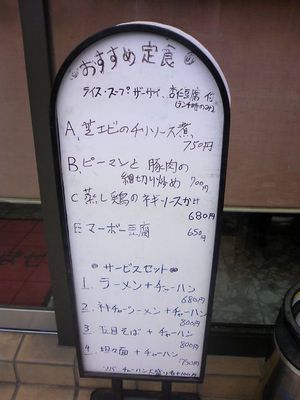 おすすめ定食
ライス・スープ ザーサイ、杏仁豆腐 付
(ランチ時のみ)
A、芝エビのチリソース煮
750円
B、ピーマンと豚肉の
細切り炒め 700円
C 蒸し鶏のネギソースかけ
680円
E マーボー豆腐 650円
サービスセット
1. ラーメン+チャーハン
680円
2. チャーシューメン+チャーハン
800円
3. 五目そば+チャーハン
800円
4. 坦々面+チャーハン
750円
チャーハン大盛り +100円